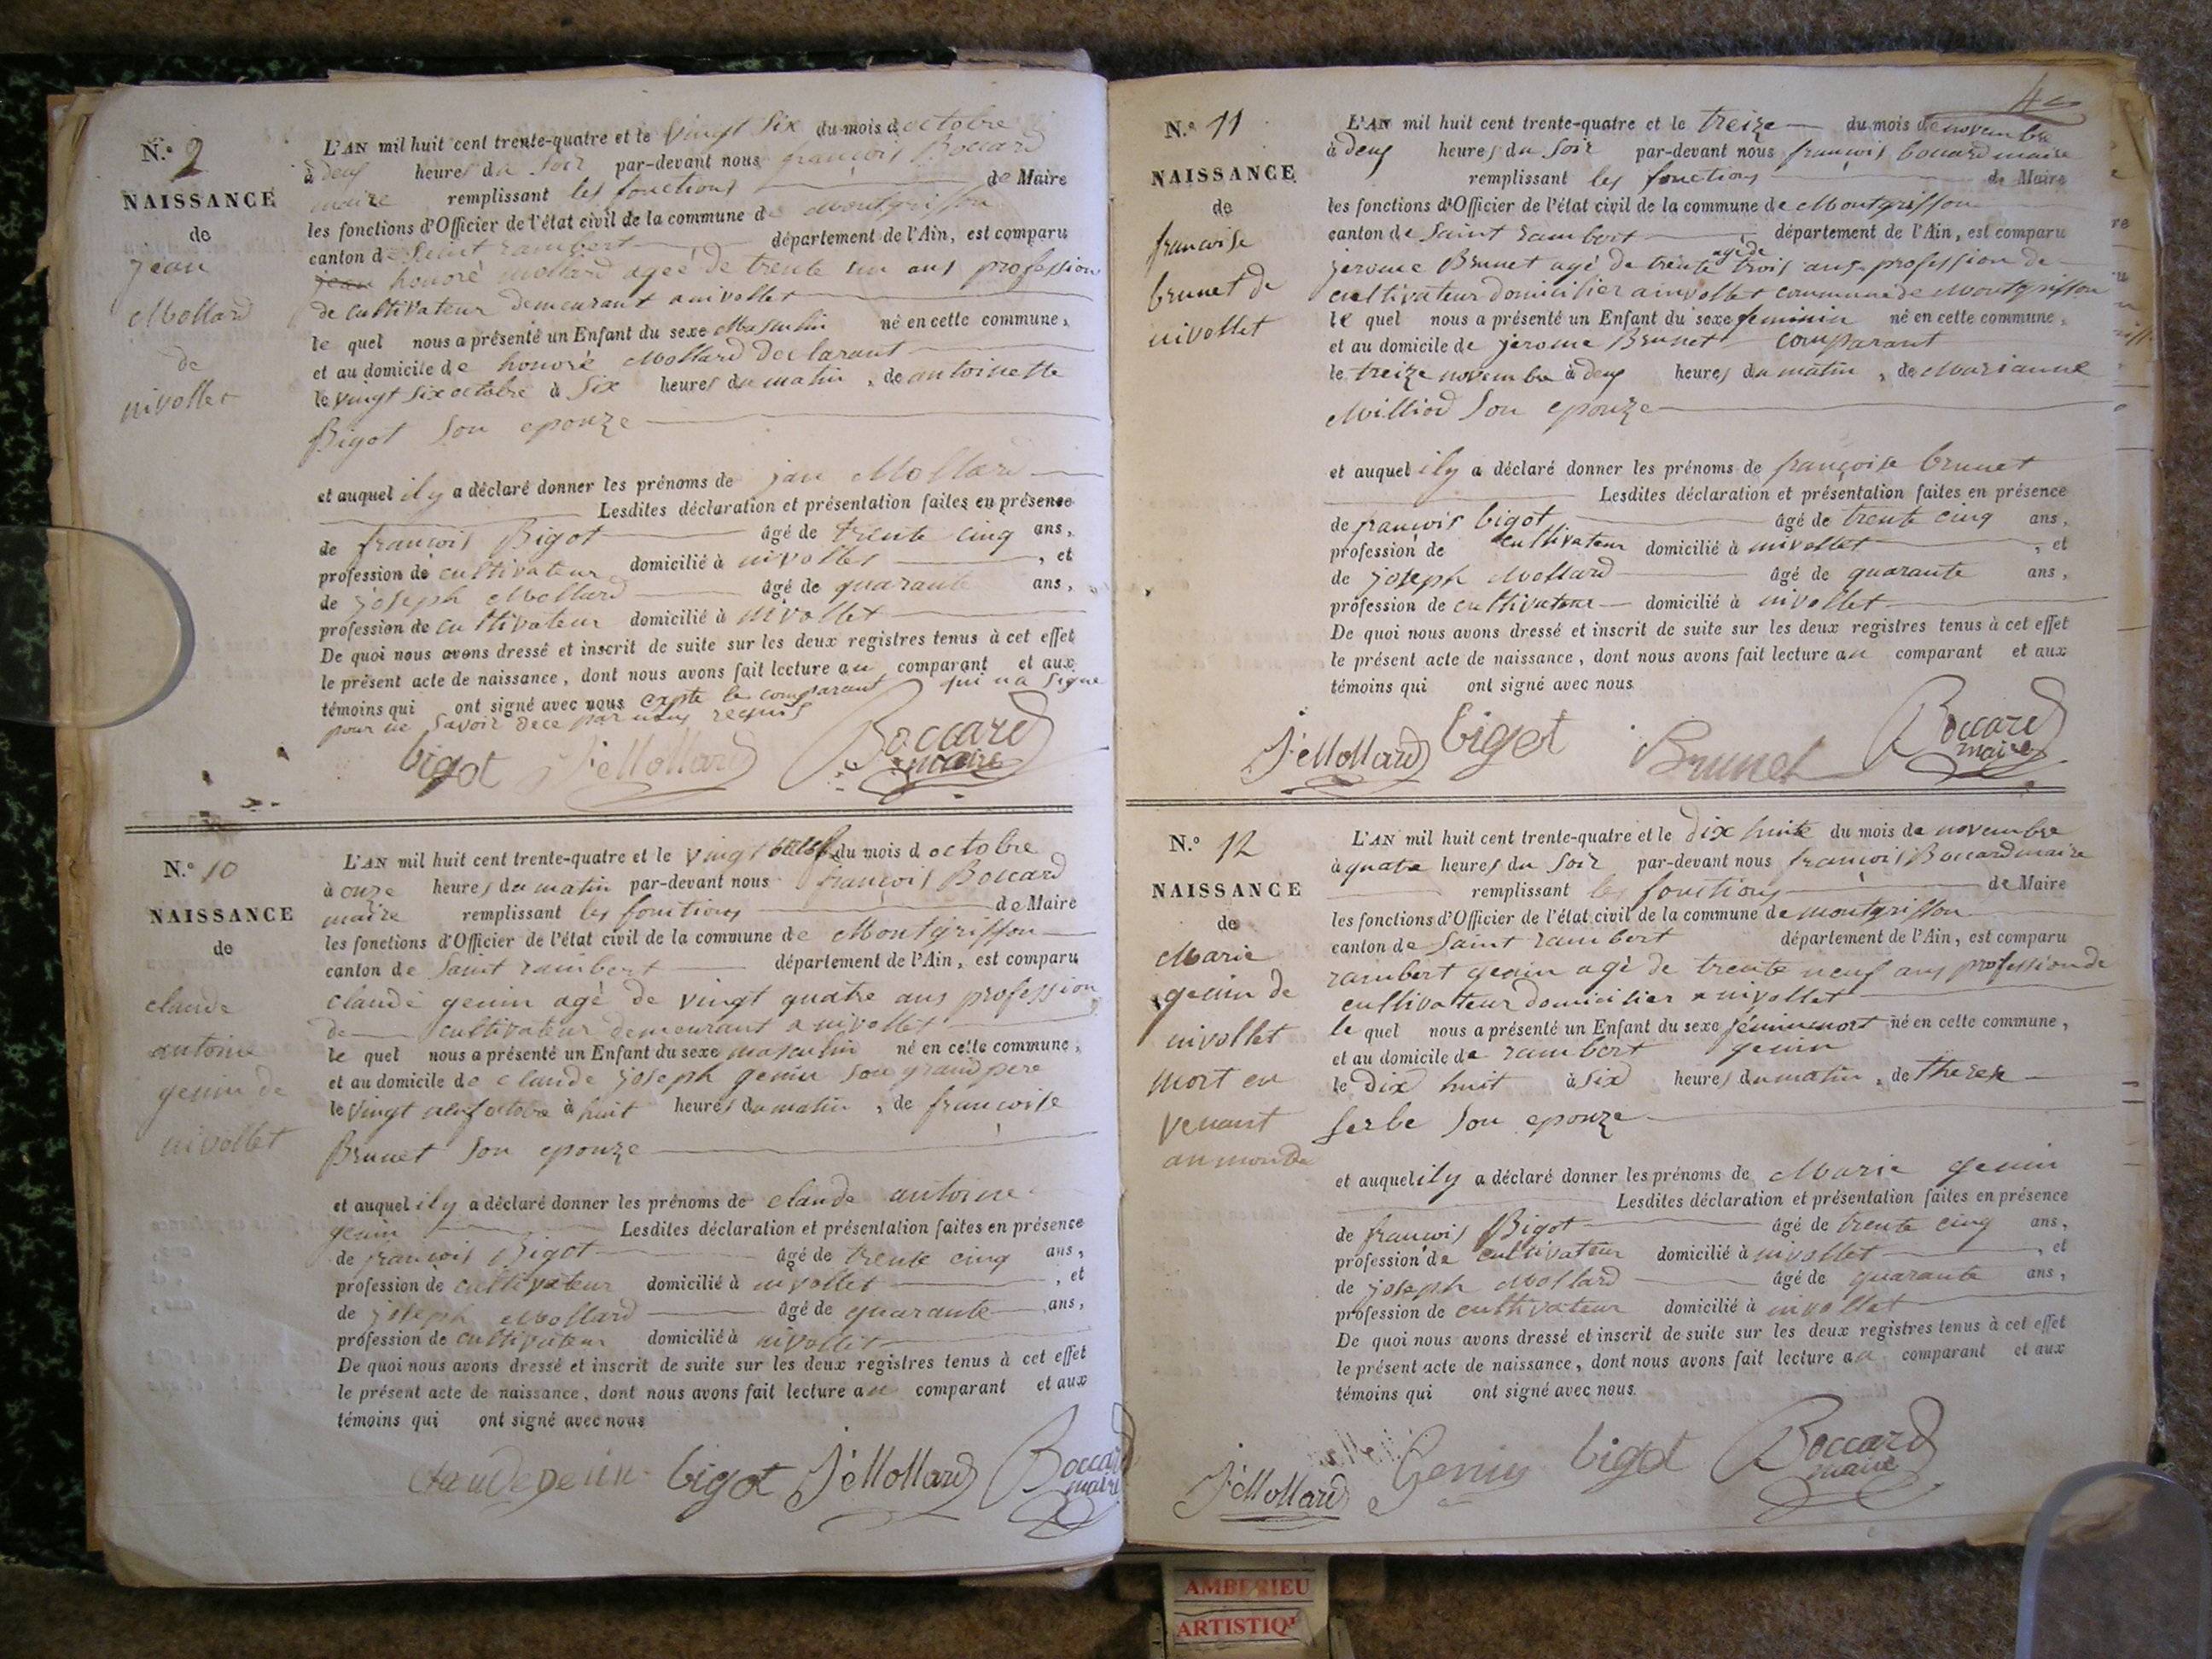 N.° 9
NAISSANCE
de
jean
Mollard
de
nivollet
L'AN mil huit cent trente-quatre et le vingt six du mois d octobre
à deux heures du soir par-devant nous françois Boccard
maire remplissant les fonctions de Maire
les fonctions d'Officier de l'état civil de la commune de Montgriffon
canton de Saint rambert département de l'Ain, est comparu
jean honoré mollard ageé de trente un ans profession
de cultivateur demeurant a nivollet
le quel nous a présenté un Enfant du sexe Masculin né en cette commune,
et au domicile de honoré Mollard declarant
le vingt six octobre à six heures du matin, de antoinette
Bigot son epouze
et auquel il y a déclaré donner les prénoms de jan Mollard
Lesdites déclaration et présentation faites en présence
de françois Bigot âgé de trente cinq ans,
profession de cultivateur domicilié à nivollet, et
de joseph Mollard âgé de quarante ans,
profession de cultivateur domicilié à nivollet
De quoi nous avons dressé et inscrit de suite sur les deux registres tenus à cet effet
le présent acte de naissance, dont nous avons fait lecture au comparant et aux
témoins qui ont signé avec nous expte le comparant qui n'a signe
pour ne savoir de ce par nous requis
bigot J'eMollard Boccard
maire
N.° 10
NAISSANCE
de
claude
antoine
genin de
nivollet
L'AN mil huit cent trente-quatre et le vingt neuf du mois d octobre
à onze heures du matin par-devant nous françois Boccard
maire remplissant les fonctions de Maire
les fonctions d'Officier de l'état civil de la commune de Montgriffon
canton de Saint rambert département de l'Ain, est comparu
claude genin agé de vingt quatre ans profession
de cultivateur demeurant a nivollet
le quel nous a présenté un Enfant du sexe masculin né en cette commune,
et au domicile de claude joseph genin son grand pere
le vingt neuf octobre à huit heures du matin, de francoise
Brunet son epouze
et auquel il y a déclaré donner les prénoms de claude antoine
genin Lesdites déclaration et présentation faites en présence
de francois Bigot âgé de trente cinq ans,
profession de cultivateur domicilié à nivollet, et
de joseph Mollard âgé de quarante ans,
profession de cultivateur domicilié à nivollet
De quoi nous avons dressé et inscrit de suite sur les deux registres tenus à cet effet
le présent acte de naissance, dont nous avons fait lecture au comparant et aux
témoins qui ont signé avec nous
claude genin bigot J'eMollard Boccard
maire
N.° 11
NAISSANCE
de
francoise
brunet de
nivollet
L'AN mil huit cent trente-quatre et le treize du mois de novembre
à deux heures du soir par-devant nous françois boccard maire
remplissant les fonctions de Maire
les fonctions d'Officier de l'état civil de la commune de Montgriffon
canton de Saint rambert département de l'Ain, est comparu
jerome Brunet agé de trente trois ans profession de
cultivateur domicilier a nivollet commune de Montgriffon
le quel nous a présenté un Enfant du sexe feminin né en cette commune,
et au domicile de jerome Brunet comparant
le treize novembre à deux heures du matin, de Marianne
Milliod son epouze
et auquel il y a déclaré donner les prénoms de françoise brunet
Lesdites déclaration et présentation faites en présence
de françois bigot âgé de trente cinq ans,
profession de cultivateur domicilié à nivollet, et
de joseph Mollard âgé de quarante ans,
profession de cultivateur domicilié à nivollet
De quoi nous avons dressé et inscrit de suite sur les deux registres tenus à cet effet
le présent acte de naissance, dont nous avons fait lecture au comparant et aux
témoins qui ont signé avec nous
J'eMollard bigot Brunet Boccard
maire
N.° 12
NAISSANCE
de
Marie
genin de
nivollet
mort en
venant
au monde
L'AN mil huit cent trente-quatre et le dix huite du mois de novembre
à quatre heures du soir par-devant nous francois Boccard maire
remplissant les fonctions de Maire
les fonctions d'Officier de l'état civil de la commune de montgriffon
canton de Saint rambert département de l'Ain, est comparu
rambert genin agé de trente neuf ans profession de
cultivateur domicilier a nivollet
le quel nous a présenté un Enfant du sexe féminin mort né en cette commune,
et au domicile de rambert genin
le dix huit à six heures du matin, de therese
ferbe son epouze
et auquel il y a déclaré donner les prénoms de Marie genin
Lesdites déclaration et présentation faites en présence
de francois Bigot âgé de trente cinq ans,
profession de cultivateur domicilié à nivollet, et
de joseph Mollard âgé de quarante ans,
profession de cultivateur domicilié à nivollet
De quoi nous avons dressé et inscrit de suite sur les deux registres tenus à cet effet
le présent acte de naissance, dont nous avons fait lecture au comparant et aux
témoins qui ont signé avec nous
J'eMollard Genin bigot Boccard
maire
AMBERIEU
ARTISTIQ